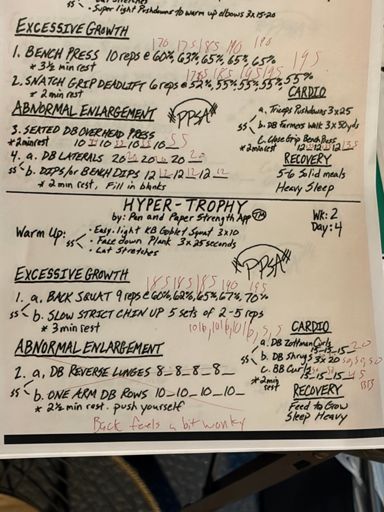 • Super light Pushdowns to warm up elbows 3x15-20
EXCESSIVE GROWTH
170 175 185 190 195
1. BENCH PRESS 10 reps @ 60%, 63%, 65%, 65%, 65% 195
* 3½ min rest
2. SNATCH GRIP DEADLIFT 6 reps @ 52%, 55%, 55%, 55%, 55%, 55%
* 2 min rest
CARDIO
ss a. Triceps Pushdowns 3x25
b. DB Farmers Walk 3x50yds
c. Close Grip Bench Press
* 2 min rest
ABNORMAL ENLARGEMENT
PPSA
3. SEATED DB OVERHEAD PRESS
* 2 min rest 10 10 10 10 10 55
4. a. DB LATERALS 20 20 20 20
ss b. DIPS/or BENCH DIPS 12 12 12 12
* 2 min rest, Fill in blanks
RECOVERY
5-6 Solid meals
Heavy Sleep
HYPER-TROPHY
by: Pen and Paper Strength App TM
WK: 2
Day: 4
Warm Up: • Easy, light KB Goblet Squat 3x10
ss • Face down Plank 3x25 seconds
• Lat Stretches
PPSA
EXCESSIVE GROWTH
185 185 185 190 195
1. a. BACK SQUAT 9 reps @ 60%, 62%, 65%, 67%, 70%
ss b. SLOW STRICT CHIN UP 5 sets of 2-5 reps
* 3 min rest
10lb, 10lb, 10lb, 5, 5
CARDIO
a. DB Zottman Curls
15-15-15- 20
ss b. DB Shrugs 3x20 50, 50, 50
c. BB Curls
15-15-15- 45
* 2 min rest
BB
ABNORMAL ENLARGEMENT
2. a. DB REVERSE LUNGES 8_8_8_8_
ss b. ONE ARM DB ROWS 10_10_10_10_
* 2½ min rest. push yourself
RECOVERY
Feed to Grow
Sleep Heavy
Back feels a bit wonky